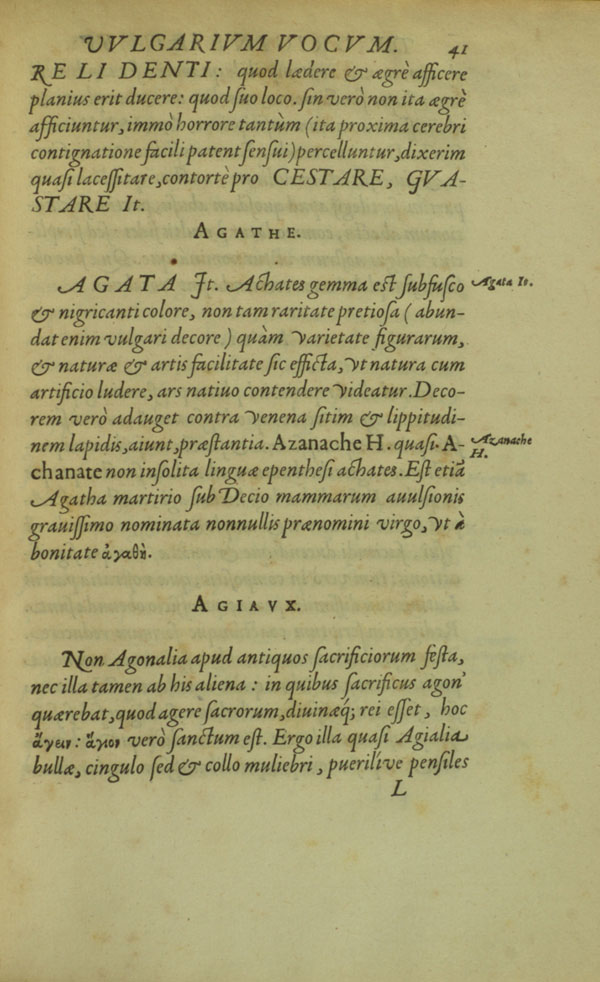 VVLGARIVM VOCVM. 41
RE LI DENTI: quod lædere & ægrè afficere
planius erit ducere: quod suo loco. sin verò non ita ægrè
afficiuntur, immò horrore tantùm (ita proxima cerebri
contignatione facili patent sensui) percelluntur, dixerim
quasi lacessitare, contortè pro CESTARE, GVA-
STARE It.
AGATHE.
AGATA It. Achates gemma est subfusco
Agata It.
& nigricanti colore, non tam raritate pretiosa (abun-
dat enim vulgari decore) quàm varietate figurarum,
& naturæ & artis facilitate sic efficta, vt natura cum
artificio ludere, ars natiuo contendere videatur. Deco-
rem verò adauget contra venena sitim & lippitudi-
nem lapidis, aiunt, præstantia. Azanache H. quasi. A-
Azanache
H.
chanate non insolita linguæ epenthesi achates. Est etiā
Agatha martirio sub Decio mammarum auulsionis
grauissimo nominata nonnullis prænomini virgo, vt à
bonitate ἀγαθὴ.
AGIAVX.
Non Agonalia apud antiquos sacrificiorum festa,
nec illa tamen ab his aliena: in quibus sacrificus agon'
quærebat, quod agere sacrorum, diuinæq; rei esset, hoc
ἄγειν: ἅγιον verò sanctum est. Ergo illa quasi Agialia
bullæ, cingulo sed & collo muliebri, puerilive pensiles
L